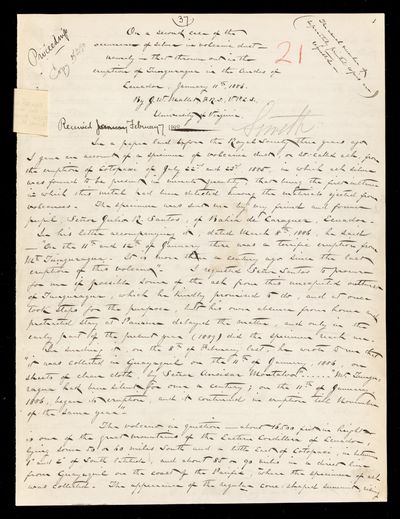 (37)
Proceedings
Copy
21
On a second case of the
occurrence of silver in volcanic dust —
namely in that thrown out in the
eruption of Tunguragua in the Andes of
Ecuador, January 11th, 1886.
By J. W. Mallet, F.R.S.,
University of Virginia.
Received February 7
Smith
In a paper laid before the Royal Society three years ago
I gave an account of a specimen of volcanic dust, or so-called ash, from
the eruption of Cotopaxi of July 22nd and 23rd 1885, in which ash silver
was found to be present in minute quantity, this being the first instance
in which this metal had been detected among the materials ejected from
volcanoes. The specimen was sent me by my friend and former
pupil, Señor Julio R. Santos, of Bahia de Caraquez, Ecuador.
In his letter accompanying it, dated March 8th, 1886, he said
"On the 11th and 12th of January there was a terrific eruption from
Mt. Tunguragua. It is more than a century ago since the last
eruption of this volcano". I requested Señor Santos to procure
for me if possible some of the ash from this unexpected outburst
of Tunguragua, which he kindly promised to do, and at once
took steps for the purpose, but his own absence from home and
protracted stay at Panama delayed the matter, and only in the
early part of the present year (1887) did the specimen reach me.
In sending it on the 8th of February last he wrote to me that
"it was collected in Guayaquil on the 11th of January, 1886, on
sheets of clean cloth by Señor
ragua had been silent for over a century; on the 11th of January
1886, began its eruption, and it continued in eruption till November
of the same year."
The volcano in question — about 16,500 feet in height —
is one of the great mountains of the Eastern Cordillera of Ecuador
lying some 50 or 60 miles South and a little East of Cotopaxi, in between
1° and 2° of South Latitude, and about 80 or 90 miles in a direct line
from Guayaquil on the coast of the Pacific, where the specimen of ash
was collected. The appearance of the regular cone-shaped summit